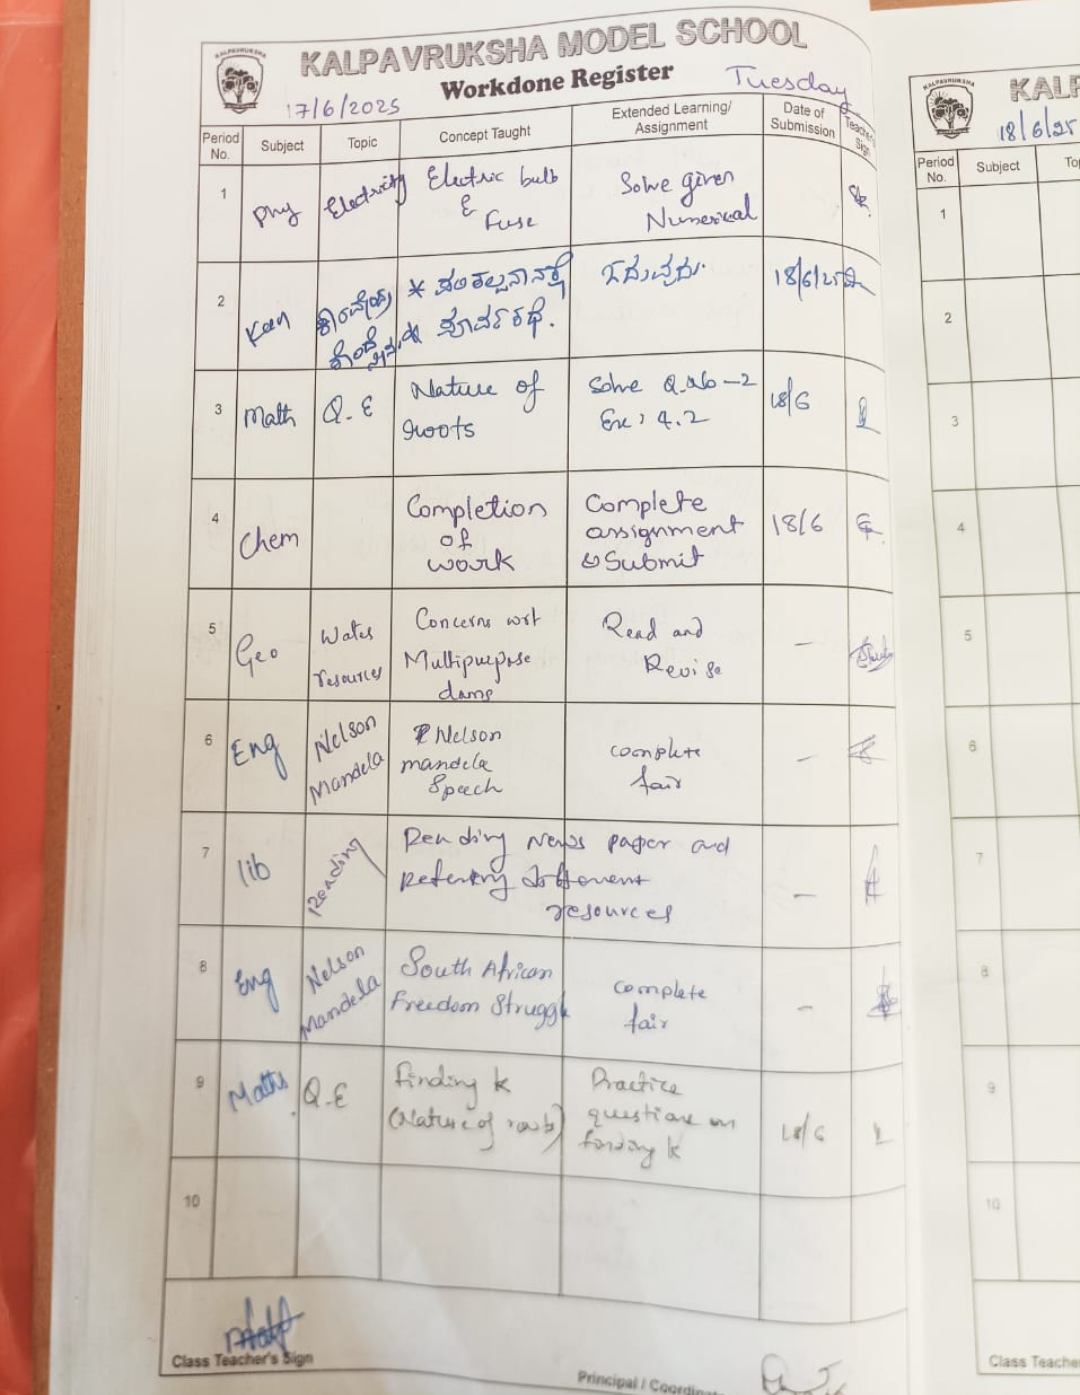 KALPAVRUKSHA MODEL SCHOOL
Workdone Register
17/6/2025
Tuesday
Period No.
Subject
Topic
Concept Taught
Extended Learning/ Assignment
Date of Submission
Teacher's Sign
1
Phy
Electricity
Electric bulb
&
Fuse
Solve given
Numerical
2
Kan
ಓದುವುದು.
18/6/25
3
Math
Q.E
Nature of
roots
Solve Q.No-2
Ex: 4.2
18/6
4
Chem
Completion
of
work
Complete
assignment
& Submit
18/6
5
Geo
Water
resources
Concerns wrt
Multipurpose
dams
Read and
Revise
-
6
Eng
Nelson
Mandela
Nelson
mandela
Speech
complete
fair
-
7
lib
Reading
Reading News paper and
Refering different
resources
-
8
Eng
Nelson
Mandela
South African
Freedom Struggle
complete
fair
-
9
Maths
Q.E
Finding k
(Nature of roots)
Practice
questions on
finding k
18/6
10
Class Teacher's Sign
Principal / Coordinat
KALPAVRUKSHA
KALP
18/6/25
Period No.
Subject
To
1
2
3
4
5
6
7
8
9
10
Class Teache